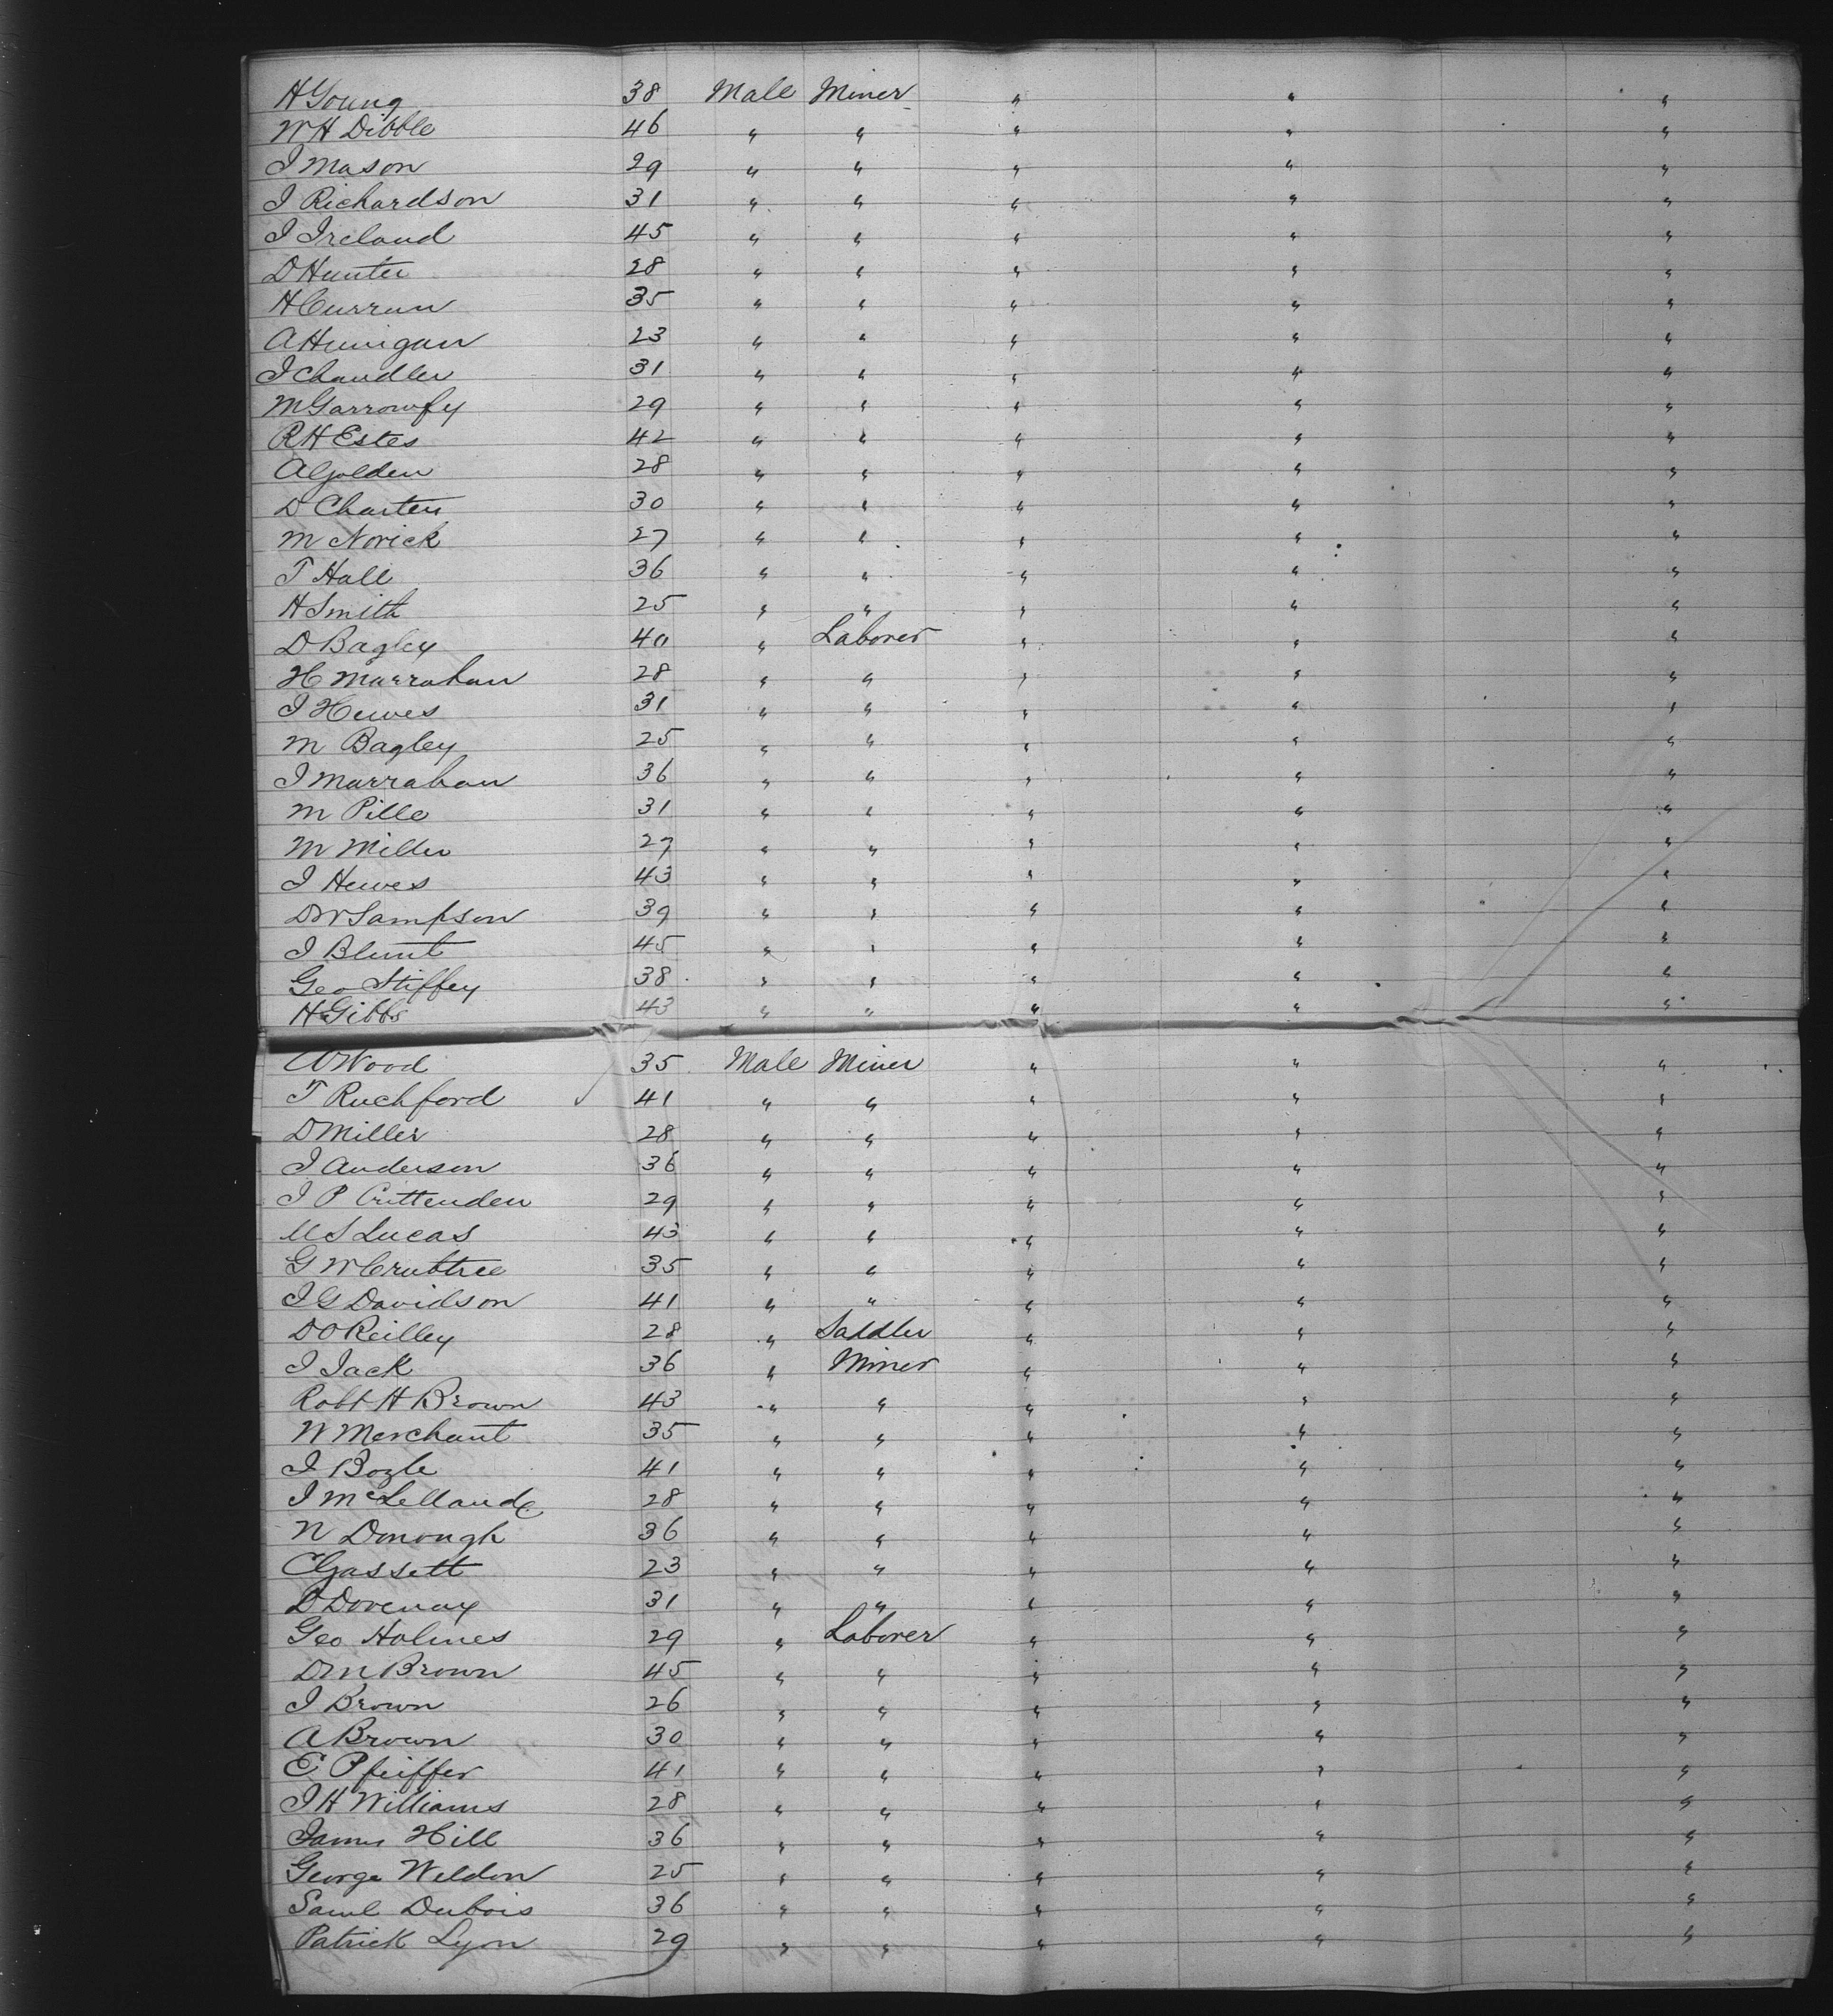 H Young 38 Male Miner " " "
W H Dibble 46 " " " " "
J Mason 29 " " " " "
J Richardson 31 " " " " "
J Ireland 45 " " " " "
D Hunter 28 " " " " "
H Curran 35 " " " " "
A Hunigan 23 " " " " "
J Chandler 31 " " " " "
M Garrowfy 29 " " " " "
R H Estes 42 " " " " "
A Golden 28 " " " " "
D Charters 30 " " " " "
M Norick 27 " " " " "
T Hall 36 " " " " "
H Smith 25 " " " " "
D Bagley 40 " Laborer " " "
H Marrahan 28 " " " " "
J Hewes 31 " " " " "
M Bagley 25 " " " " "
J Marrahan 36 " " " " "
M Pille 31 " " " " "
M Miller 27 " " " " "
J Hewes 43 " " " " "
D W Sampson 39 " " " " "
J Blunt 45 " " " " "
Geo Stiffey 38 " " " " "
H Gibbs 43 " " " " "
A Wood 35 Male Miner " " "
T Ruchford 41 " " " " "
D Miller 28 " " " " "
J Anderson 36 " " " " "
J P Crittenden 29 " " " " "
M S Lucas 43 " " " " "
G W Crabtree 35 " " " " "
J G Davidson 41 " " " " "
D O Reilley 28 " Saddler " " "
J Jack 36 " Miner " " "
Robt H Brown 43 " " " " "
W Merchant 35 " " " " "
J Bogle 41 " " " " "
J McLelland 28 " " " " "
N Donough 36 " " " " "
C Gassett 23 " " " " "
D Dorenay 31 " " " " "
Geo Holmes 29 " Laborer " " "
D M Brown 45 " " " " "
J Brown 26 " " " " "
A Brown 30 " " " " "
E Pfeiffer 41 " " " " "
J H Williams 28 " " " " "
James Hill 36 " " " " "
George Weldon 25 " " " " "
Saml Dubois 36 " " " " "
Patrick Lyon 29 " " " " "